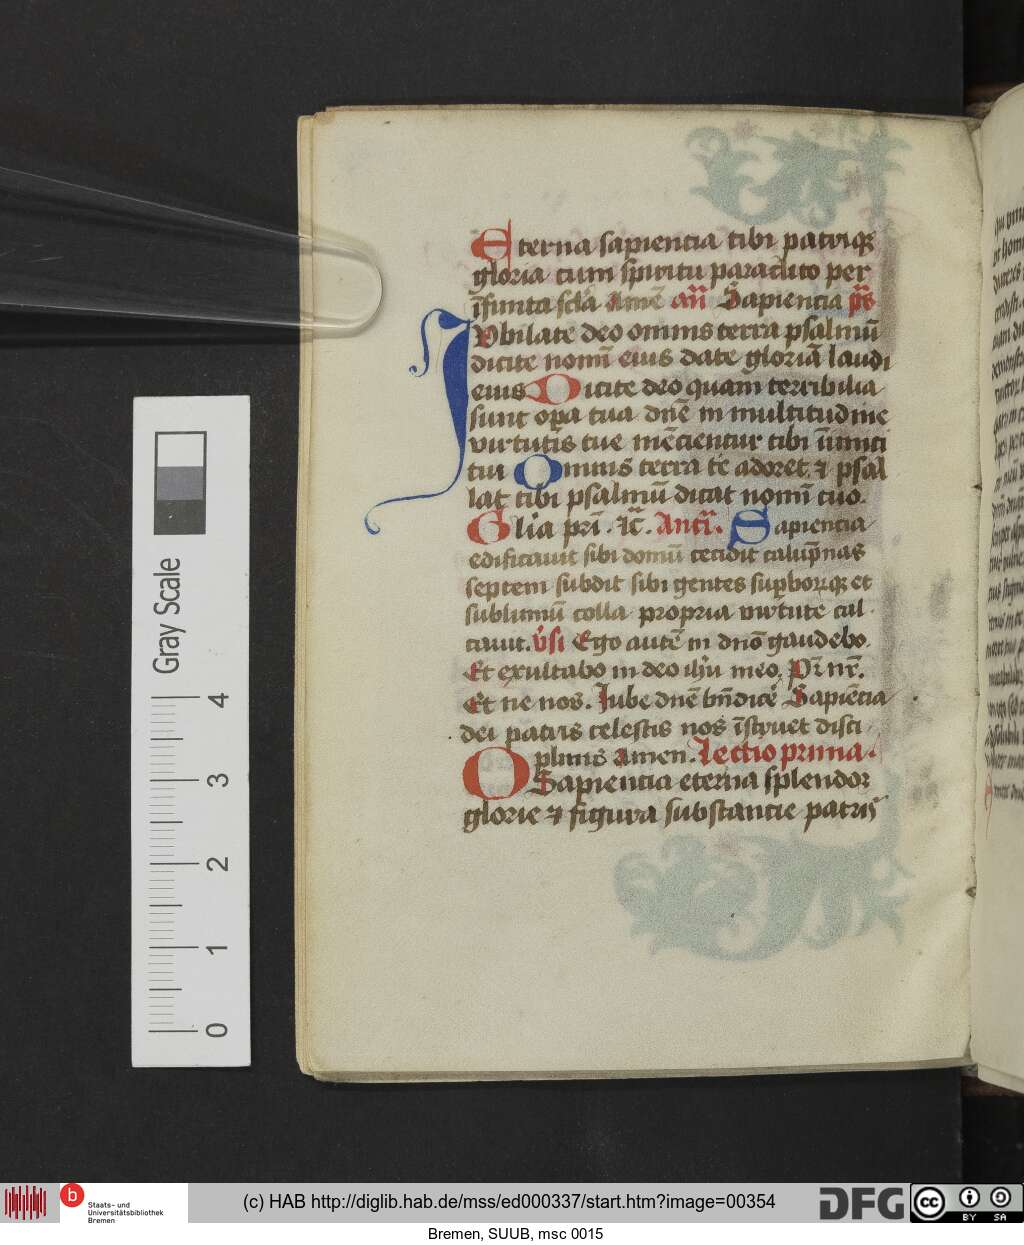 Eterna sapientia tibi patriqꝫ
gloria cum spiritu paraclito per
īfinita sc̄la Amē an̄ Sapiencia p̄s
Jvbilate deo omnis terra psalmū
dicite nomī eius date gloriā laudi
eius Dicite deo quam terribilia
sunt oꝑa tua dn̄e in multitudine
virtutis tue mēcientur tibi īimici
tui Omnis terra te adoret ⁊ psal
lat tibi psalmū dicat nomī tuo.
Glia pri. ⁊c̄. Antī. Sapiencia
edificauit sibi domū cecidit calūpnas
septem subdit sibi gentes suꝑborꝝqꝫ et
sublimiū colla propria virtute cal
cauit. v̄si Ego autē in dn̄o gaudebo
Et exultabo in deo ih̄u meo. Pr̄ nr̄.
Et ne nos. Jube dn̄e bn̄dice᷒ Sapiēcia
dei patris celestis nos īstruet disci
plinis Amen. Lectio prima.
O Sapiencia eterna splendor
glorie ⁊ figura substantie patris
Gray Scale
0 1 2 3 4
b Staats- und
Universitätsbibliothek
Bremen
(c) HAB http://diglib.hab.de/mss/ed000337/start.htm?image=00354
DFG
cc BY SA
Bremen, SUUB, msc 0015